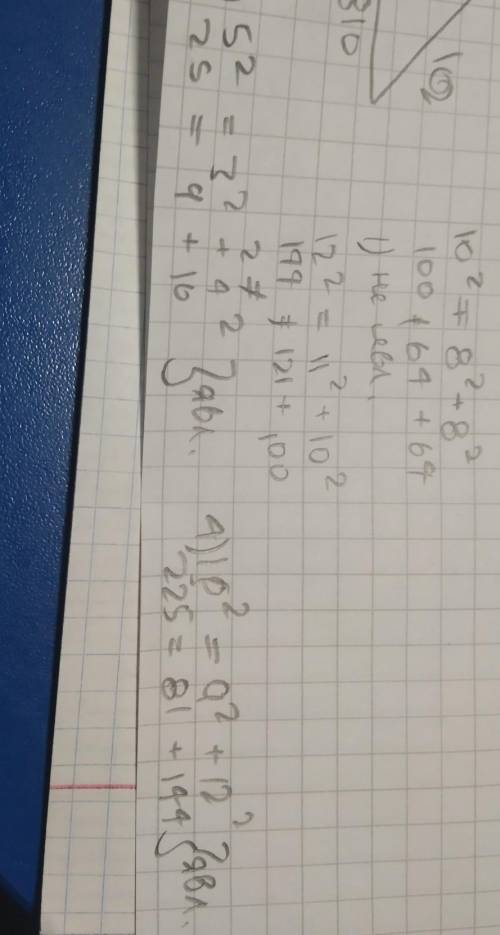 10
10
10² ≠ 8² + 8²
100 ≠ 64 + 64
1) не явл.
12² = 11² + 10²
144 ≠ 121 + 100
2 ≠
5² = 3² + 4²
25 = 9 + 16 } явл.
4) 15² = 9² + 12²
225 = 81 + 144 } явл.